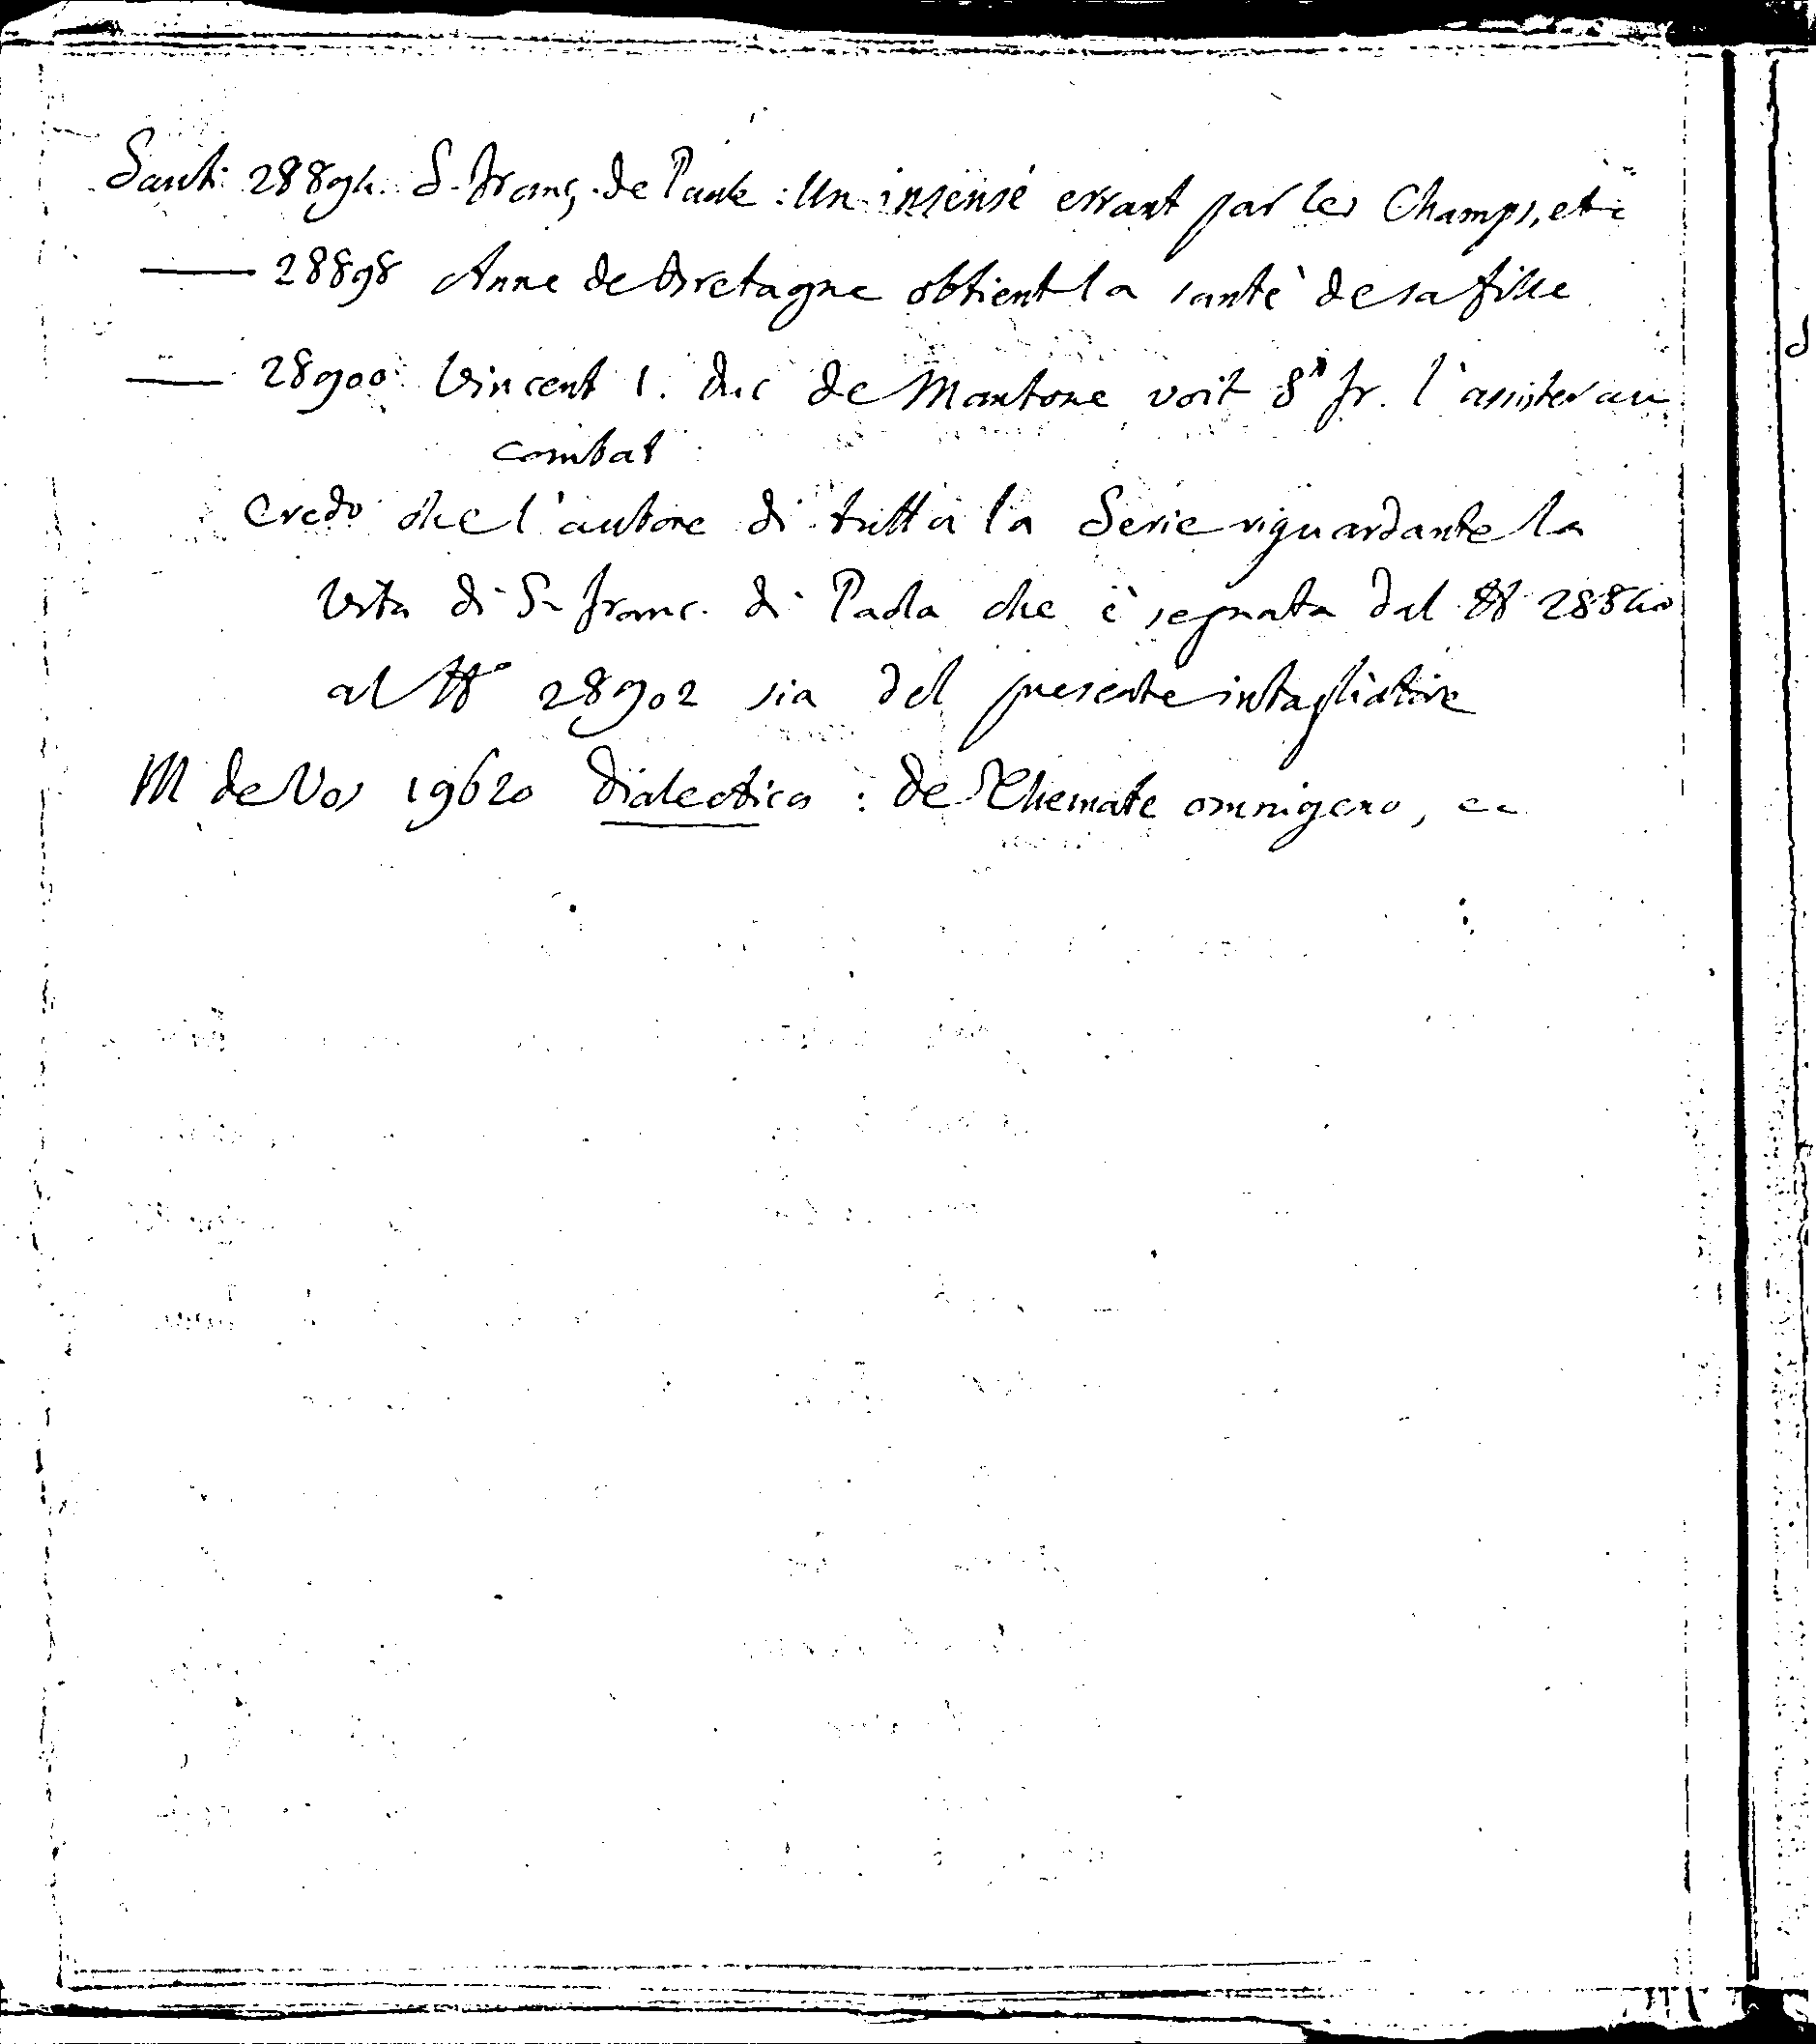 Santi 28894. S. Franç. de Paule : Un insensé errant par les Champs, etc
—— 28898 Anne de Bretagne obtient la santè de sa fille
—— 28900 Vincent 1. duc de Mantoue voit St Fr. l'assister au
combat
Credo che l'autore di tutta la Serie riguardante la
Vita di S. Franc. di Paola che è segnata dal N 28840
al No 28902 sia del presente intagliatore
M de Vos 19620 Dialectica : de Themate omnigeno, ec